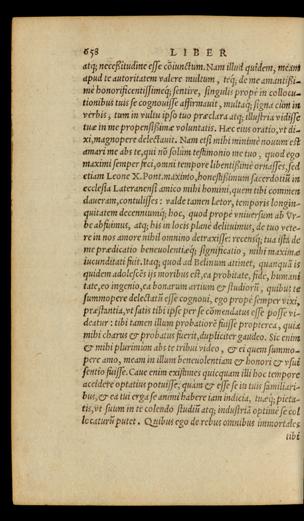 658 LIBER
atq; necessitudine esse cōiunctum. Nam illud quidem, meam
apud te autoritatem valere multum, teq; de me amantissi-
me honorificentissimeq; sentire, singulis propè in collocu-
tionibus tuis se cognouisse affirmauit, multaq; signa cùm in
verbis, tum in vultu ipso tuo præclara atq; illustria vidisse
tuæ in me propensissimæ voluntatis. Hæc eius oratio, vt di-
xi, magnopere delectauit. Nam etsi mihi minimè nouum est
amari me abs te, qui nō solùm testimonio me tuo, quod ego
maximi semper feci, omni tempore libentissimè oriasses, sed
etiam Leone X. Pont. maximo, honestissimum sacerdotiū in
ecclesia Lateranensi amico mihi homini, quem tibi commen
daueram, contulisses: valde tamen Letor, temporis longin-
quitatem decenniumq; hoc, quod propè vniuersum ab Vr-
be abfuimus, atq; his in locis planè delituimus, de tuo vete-
re in nos amore nihil omnino detraxisse: recensq; tua ista de
me prædicatio beneuolentiæq; significatio, mihi maximæ
iucunditati fuit. Itaq; quod ad Belinum attinet, quanquā is
quidem adolescēs ijs moribus est, ea probitate, fide, humani
tate, eo ingenio, ea bonarum artium & studiorū, quibus te
summopere delectatū esse cognoui, ego propè semper vixi,
præstantia, vt satis tibi ipse per se cōmendatus esse posse vi-
deatur: tibi tamen illum probatiorē fuisse propterea, quia
mihi charus & probatus fuerit, dupliciter gaudeo. Sic enim
& mihi plurimùm abs te tribui video, & ei quem summo-
pere amo, meam in illum beneuolentiam & honori & vsui
sentio fuisse. Caue enim existimes quicquam illi hoc tempore
accidere optatius potuisse, quàm & esse se in tuis familiari-
bus, & ea tui erga se animi habere iam indicia, tuæq; pieta-
tis, vt suum in te colendo studiū atq; industriā optimè se col
locaturū putet. Quibus ego de rebus omnibus immortales
tibi